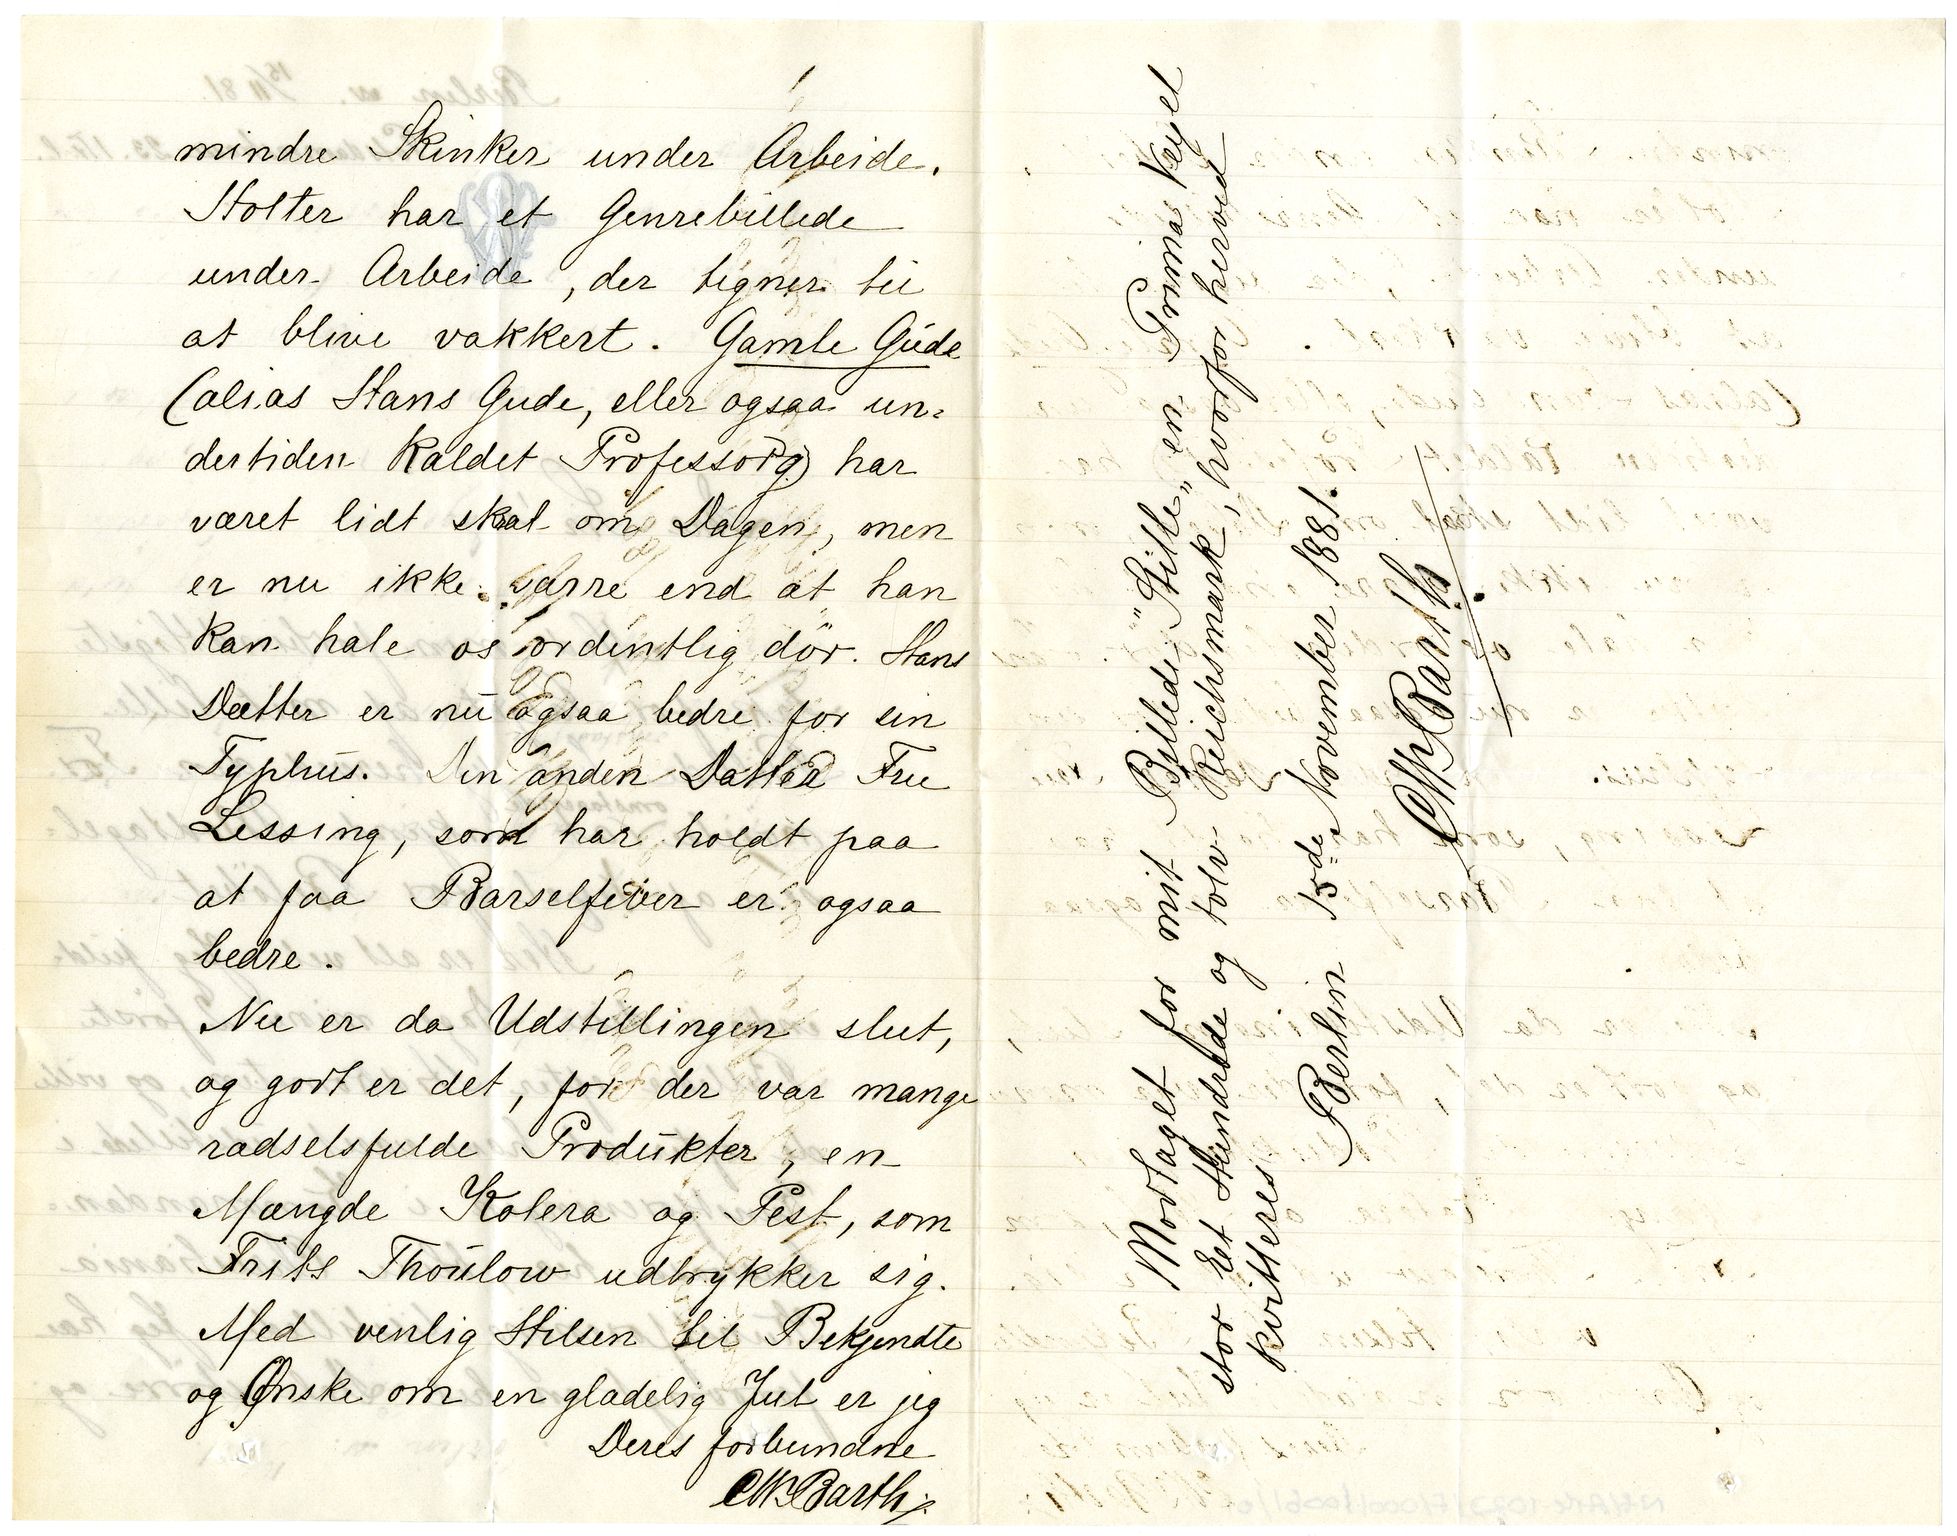 mindre Skinker under Arbeide.
Holter har et Genrebillede
under Arbeide, der tegner til
at blive vakkert. Gamle Gude
(alias Hans Gude, eller ogsaa un=
dertiden kaldet Professorg) har
været lidt skral om Dagen, men
er nu ikke værre end at han
kan hale os ordentlig dör. Hans
Datter er nu ogsaa bedre for sin
Typhus. Den anden Datter Fru
Lessing, som har holdt paa
at faa Barselfeber er ogsaa
bedre.
Nu er da Udstillingen slut,
og godt er det, for der var mange
rædselsfulde Produkter, en
Mængde Kolera og Pest, som
Frits Thaulow udtrykker sig.
Med venlig Hilsen til Bekjendte
og Ønske om en gladelig Jul er jeg
Deres forbundne
CWBarth.
Modtaget for mit Billede "Stille" en Prima Vexel
stor Et Hundrede og tolv Reichsmark, hvorfor herved
kvitteres
Berlin 15de November 1881.
CWBarth